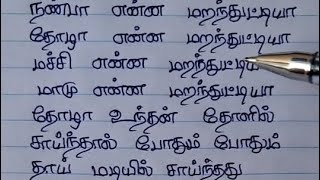 நண்பா என்ன மறந்துட்டியா
தோழா என்ன மறந்துட்டியா
மச்சி என்ன மறந்துட்டிய
மாமு என்ன மறந்துட்டியா
தோழா உந்தன் தோளில்
சாய்ந்தால் போதும் போதும்
தாய் மடியில் சாய்ந்தது